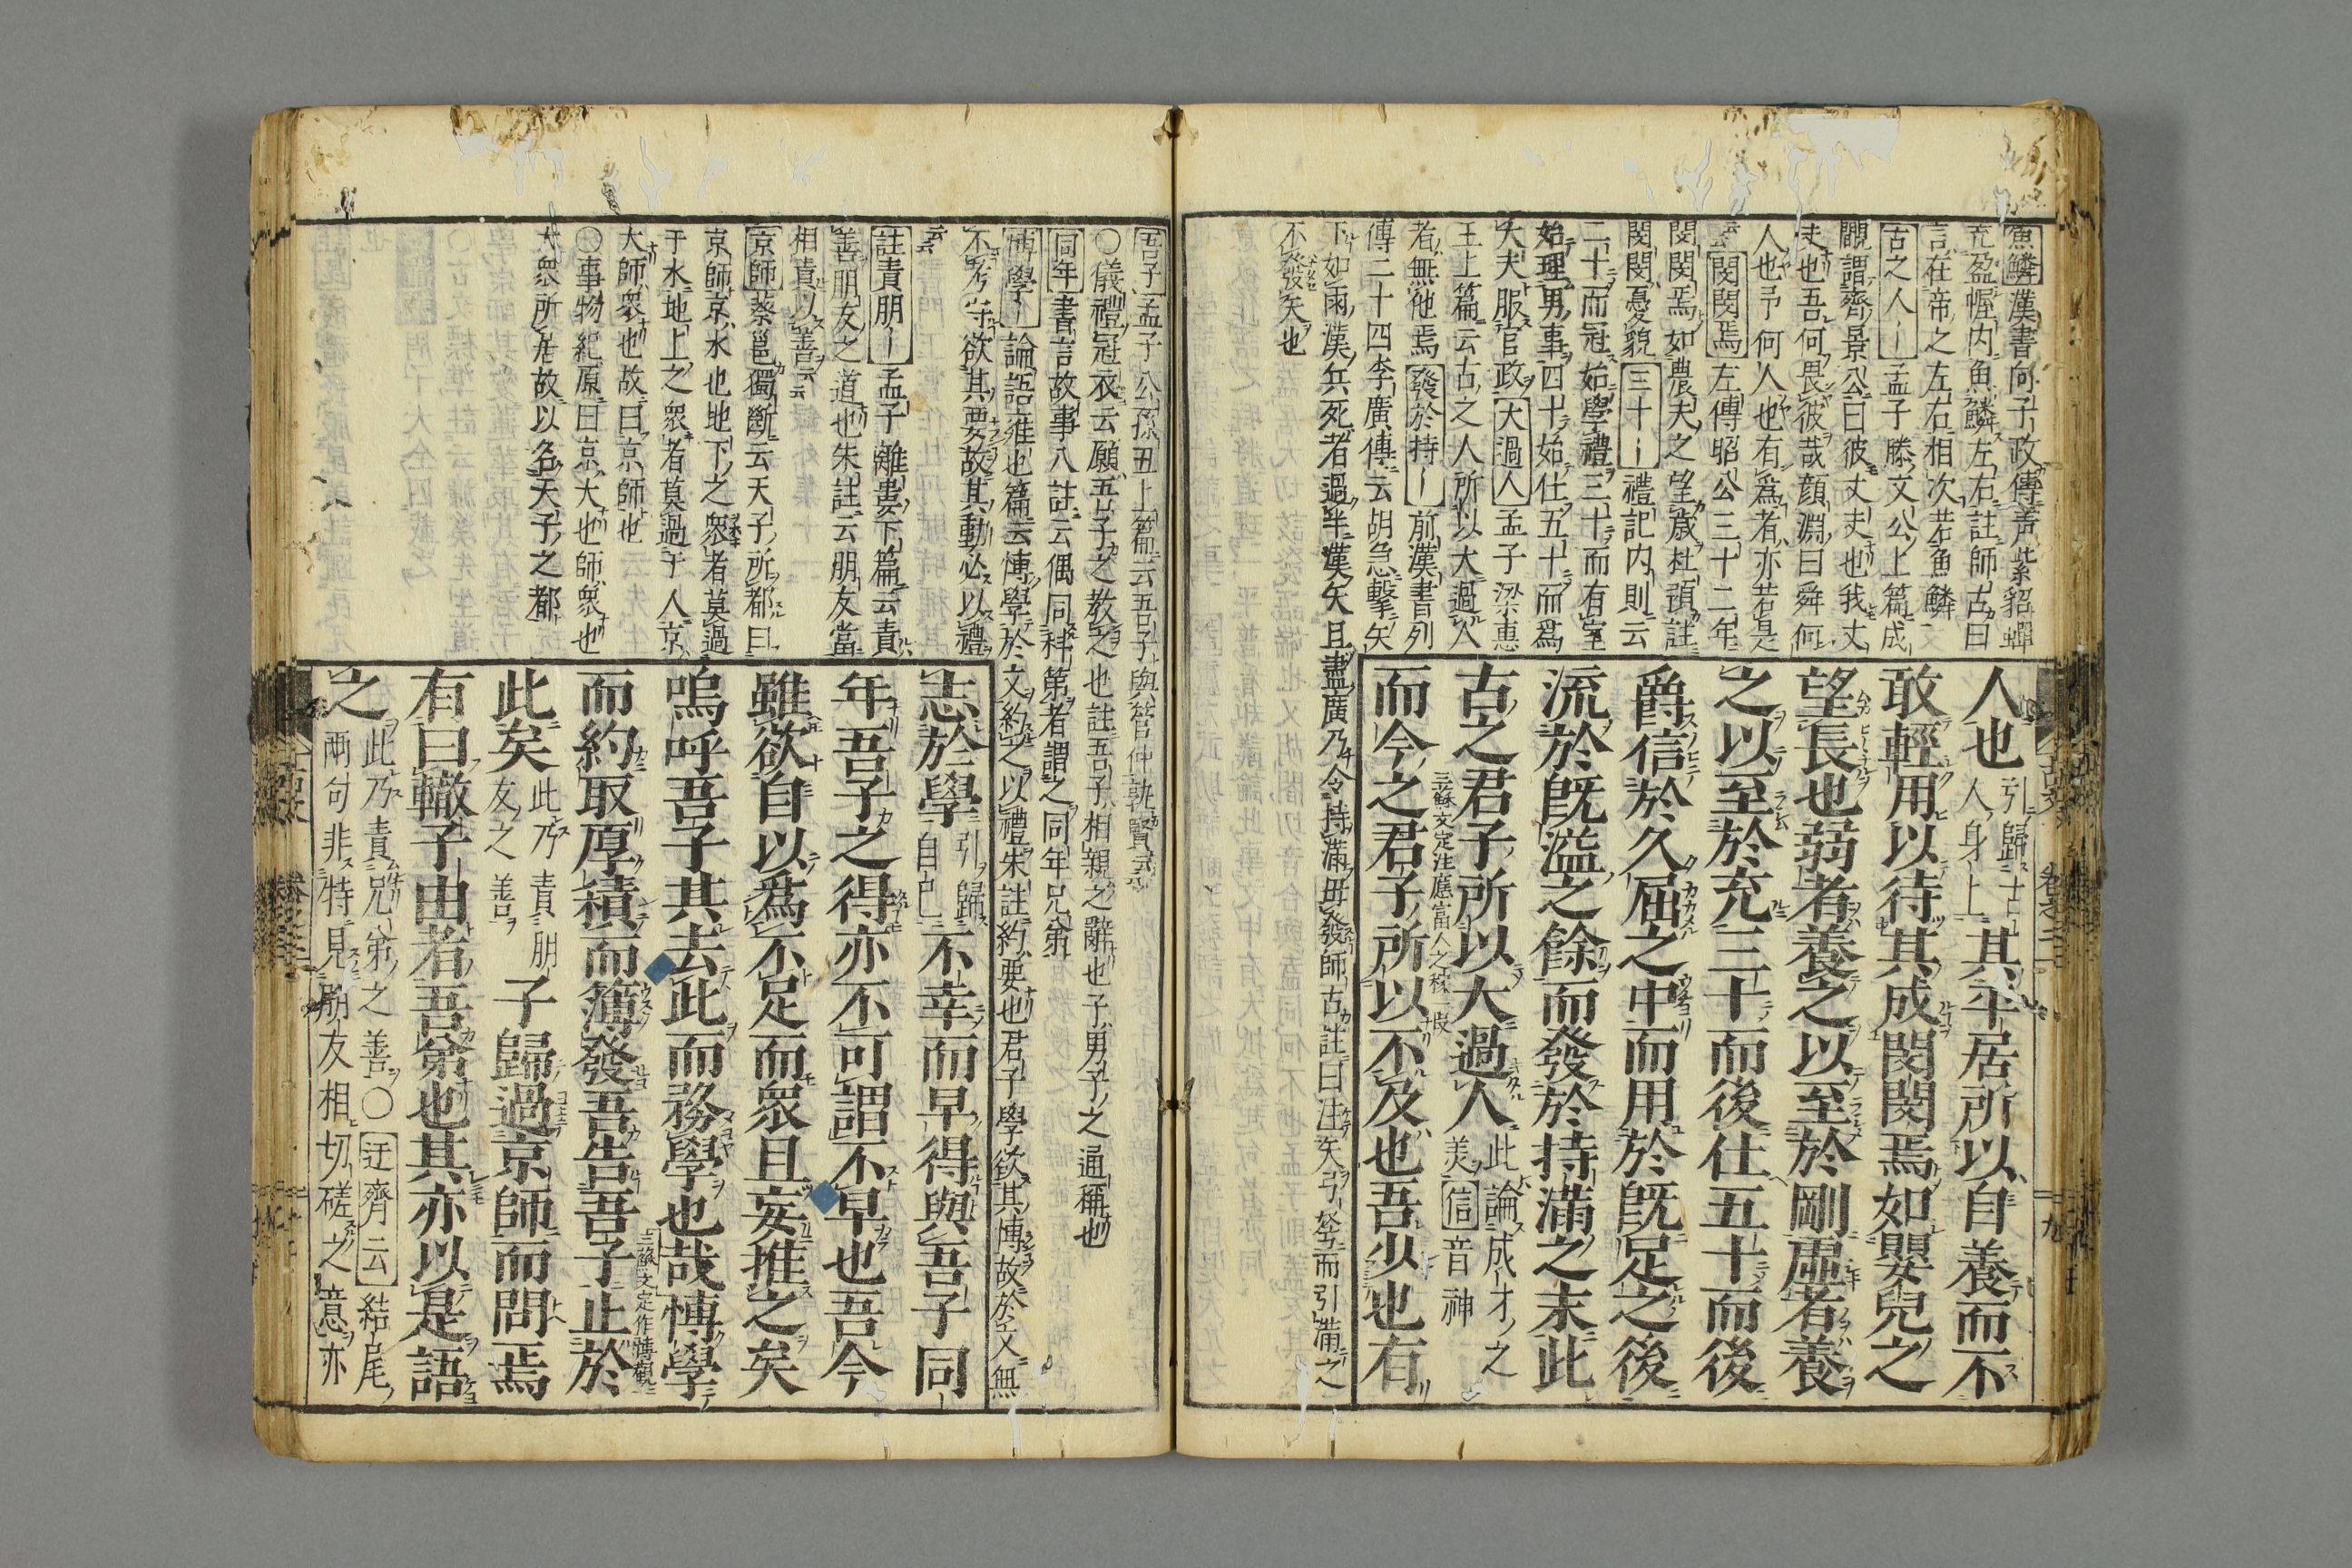 魚鱗漢書向子政傳青紫貂蟬
充盈幄内魚鱗左右註師古曰
言在帝之左右相次若魚鱗
古之人｜孟子滕文公上篇成
覵謂齊景公曰彼丈夫也我丈
夫也吾何畏彼哉顔淵曰舜何
人也予何人也有爲者亦若是
云云閔閔焉左傳昭公三十二年
閔閔焉如農夫之望歳杜預註
閔閔憂貌三十｜禮記内則云
二十而冠始學禮三十而有室
始理男事四十始仕五十而爲
大夫服官政大過人孟子梁惠
王上篇云古之人所以大過人
者無他焉發於持｜前漢書列
傳二十四李廣傳云胡急擊矢
下如雨漢兵死者過半漢矢且盡廣乃令持滿毋發師古註曰注矢引弩而引滿之
不發矢也
人也引歸古人身上其平居所以自養而不
敢輕用以待其成閔閔焉如嬰兒之
望長也弱者養之以至於剛虛者養
之以至於充三十而後仕五十而後
爵信於久屈之中而用於既足之後
流於既溢之餘而發於持滿之末此
古之君子所以大過人此論成才之美信音神
而今之君子所以不及也吾少也有
吾子孟子公孫丑上篇云吾子與管仲孰賢云云
〇儀禮冠衣云願吾子之教之也註吾子相親之辭也子男子之通稱也
同年書言故事八註云偶同科第者謂之同年兄弟
博學｜論語雍也篇云博學於文約之以禮朱註約要也君子學欲其博故於文無
不考守欲其要故其動必以禮
云云
註責朋｜孟子離婁下篇云責
善朋友之道也朱註云朋友當
相責以善云云
京師蔡邕獨斷云天子所都曰
京師京水也地下之衆者莫過
于水地上之衆者莫過于人京
大師衆也故曰京師也
〇事物紀原曰京大也師衆也
大衆所居故以名天子之都
志於學引歸自己不幸而早得與吾子同
年吾子之得亦不可謂不早也吾今
雖欲自以爲不足而衆且妄推之矣
嗚呼吾子其去此而務學也哉博學
而約取厚積而薄發吾告吾子止於
此矣此乃責朋友之善子歸過京師而問焉
有曰轍子由者吾弟也其亦以是語
之此乃責兄弟之善〇迂齊云結尾兩句非特見朋友相切磋之意亦